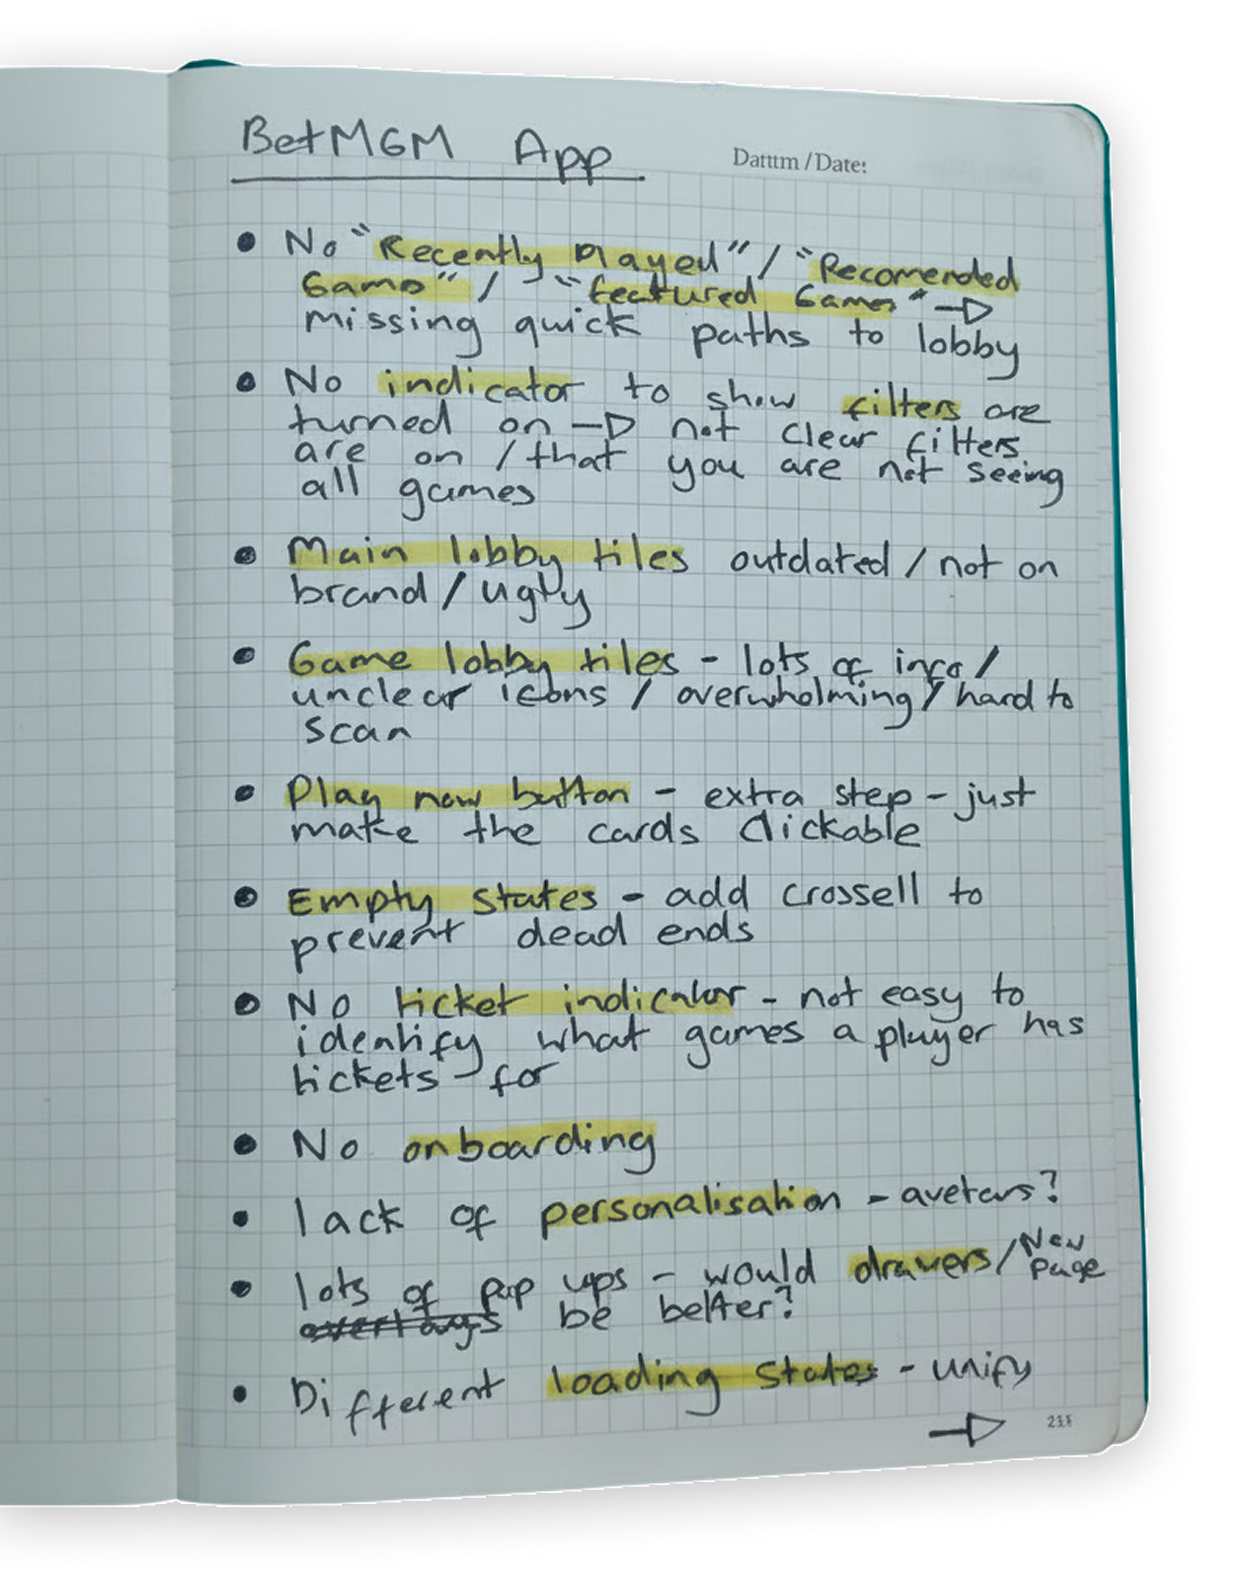 BetMGM App
Datum / Date:
• No "Recently Played" / "Recomended
Game" / "featured Games" →
missing quick paths to lobby
• No indicator to show filters are
turned on → not clear filters
are on / that you are not seeing
all games
• Main lobby tiles outdated / not on
brand / ugly
• Game lobby tiles - lots of info /
unclear icons / overwholming / hard to
scan
• Play now button - extra step - just
make the cards clickable
• Empty states - add crossell to
prevent dead ends
• No ticket indicator - not easy to
identify what games a player has
tickets for
• No onboarding
• lack of personalisation - avatars?
• lots of pop ups - would drawers / New
page
overlays be better?
• Different loading states - unify
→